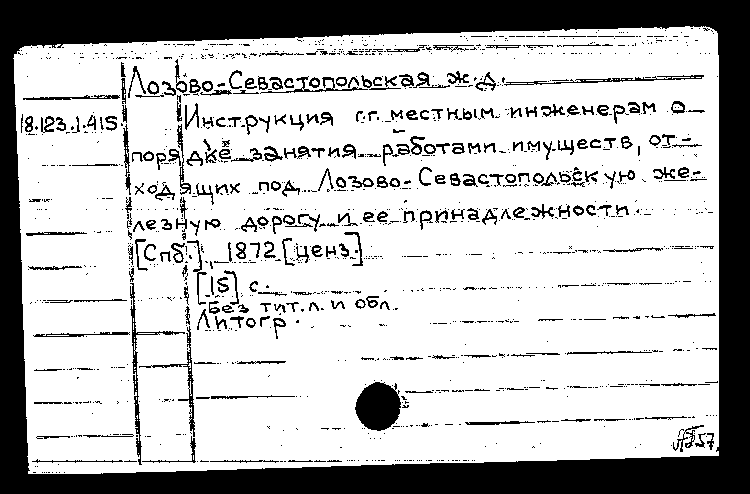 Лозово-Севастопольская ж.д.
18.123.1.415. Инструкция г.г. местным инженерам о
порядке занятия работами имуществ, от-
ходящих под Лозово-Севастопольскую же-
лезную дорогу и ее принадлежности.
[Спб.], 1872 [ценз.]
[15] с.
Без тит.л. и обл.
Литогр.